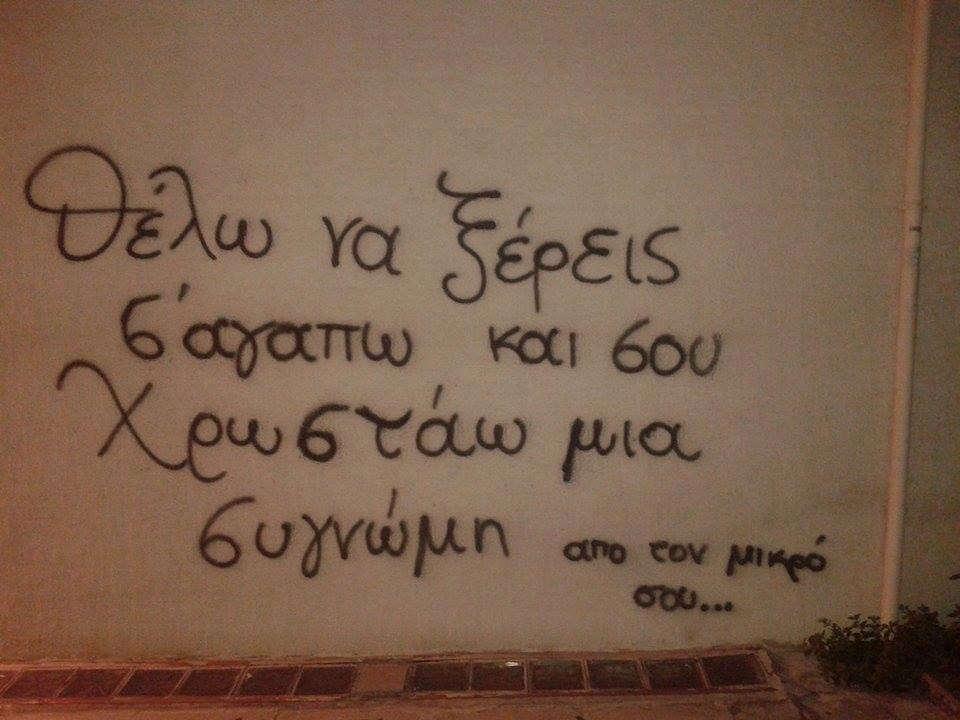 θέλω να ξέρεις
σ'αγαπω και σου
χρωστάω μια
συγνώμη απο τον μικρό
σου...